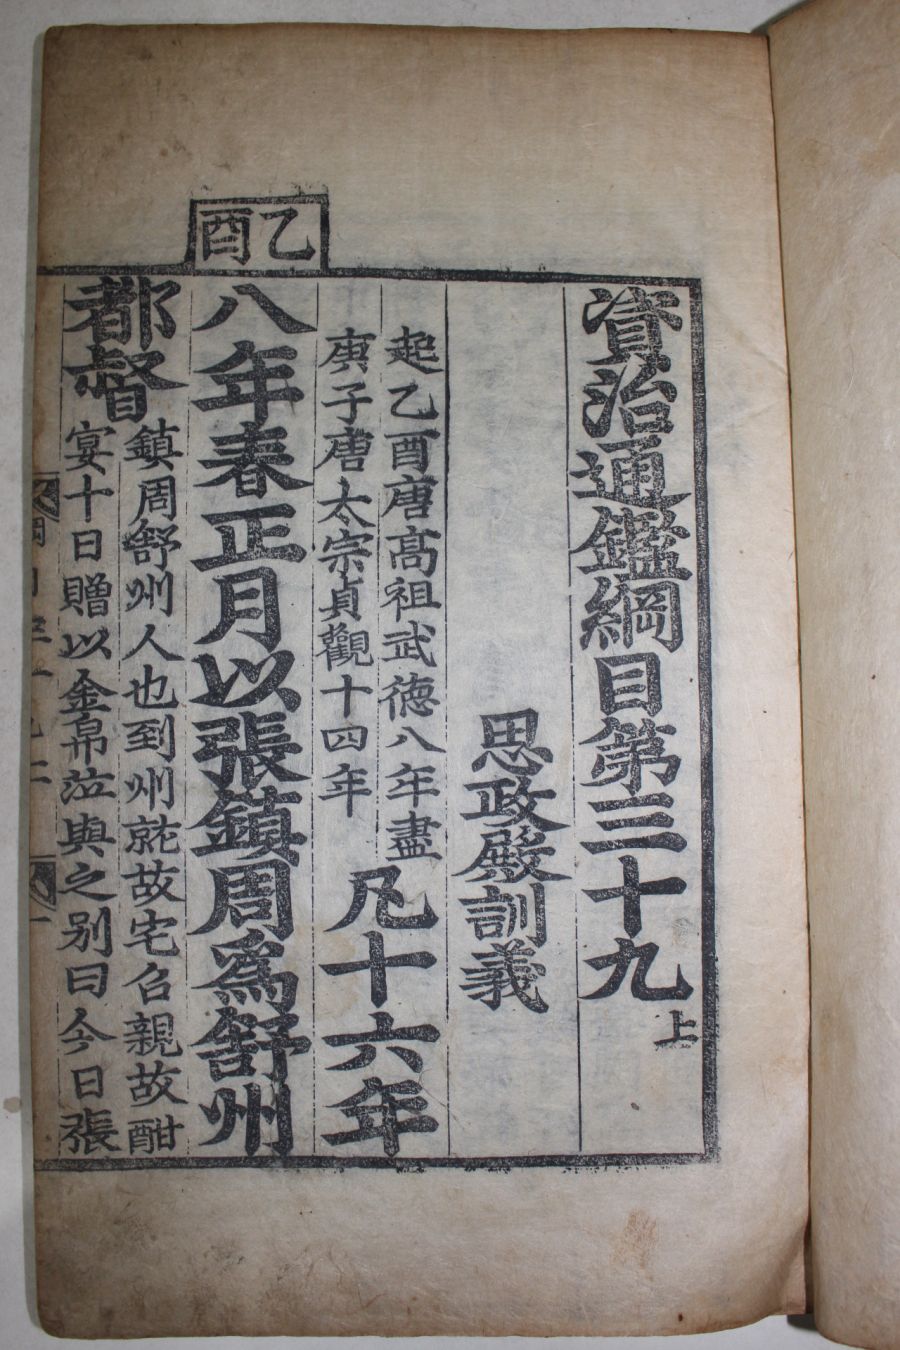 資治通鑑綱目第三十九上
思政殿訓義
起乙酉唐高祖武德八年盡
庚子唐太宗貞觀十四年
凡十六年
乙酉
八年春正月以張鎮周爲舒州
都督
鎮周舒州人也到州就故宅召親故酣
宴十日贈以金帛泣與之别曰今日張